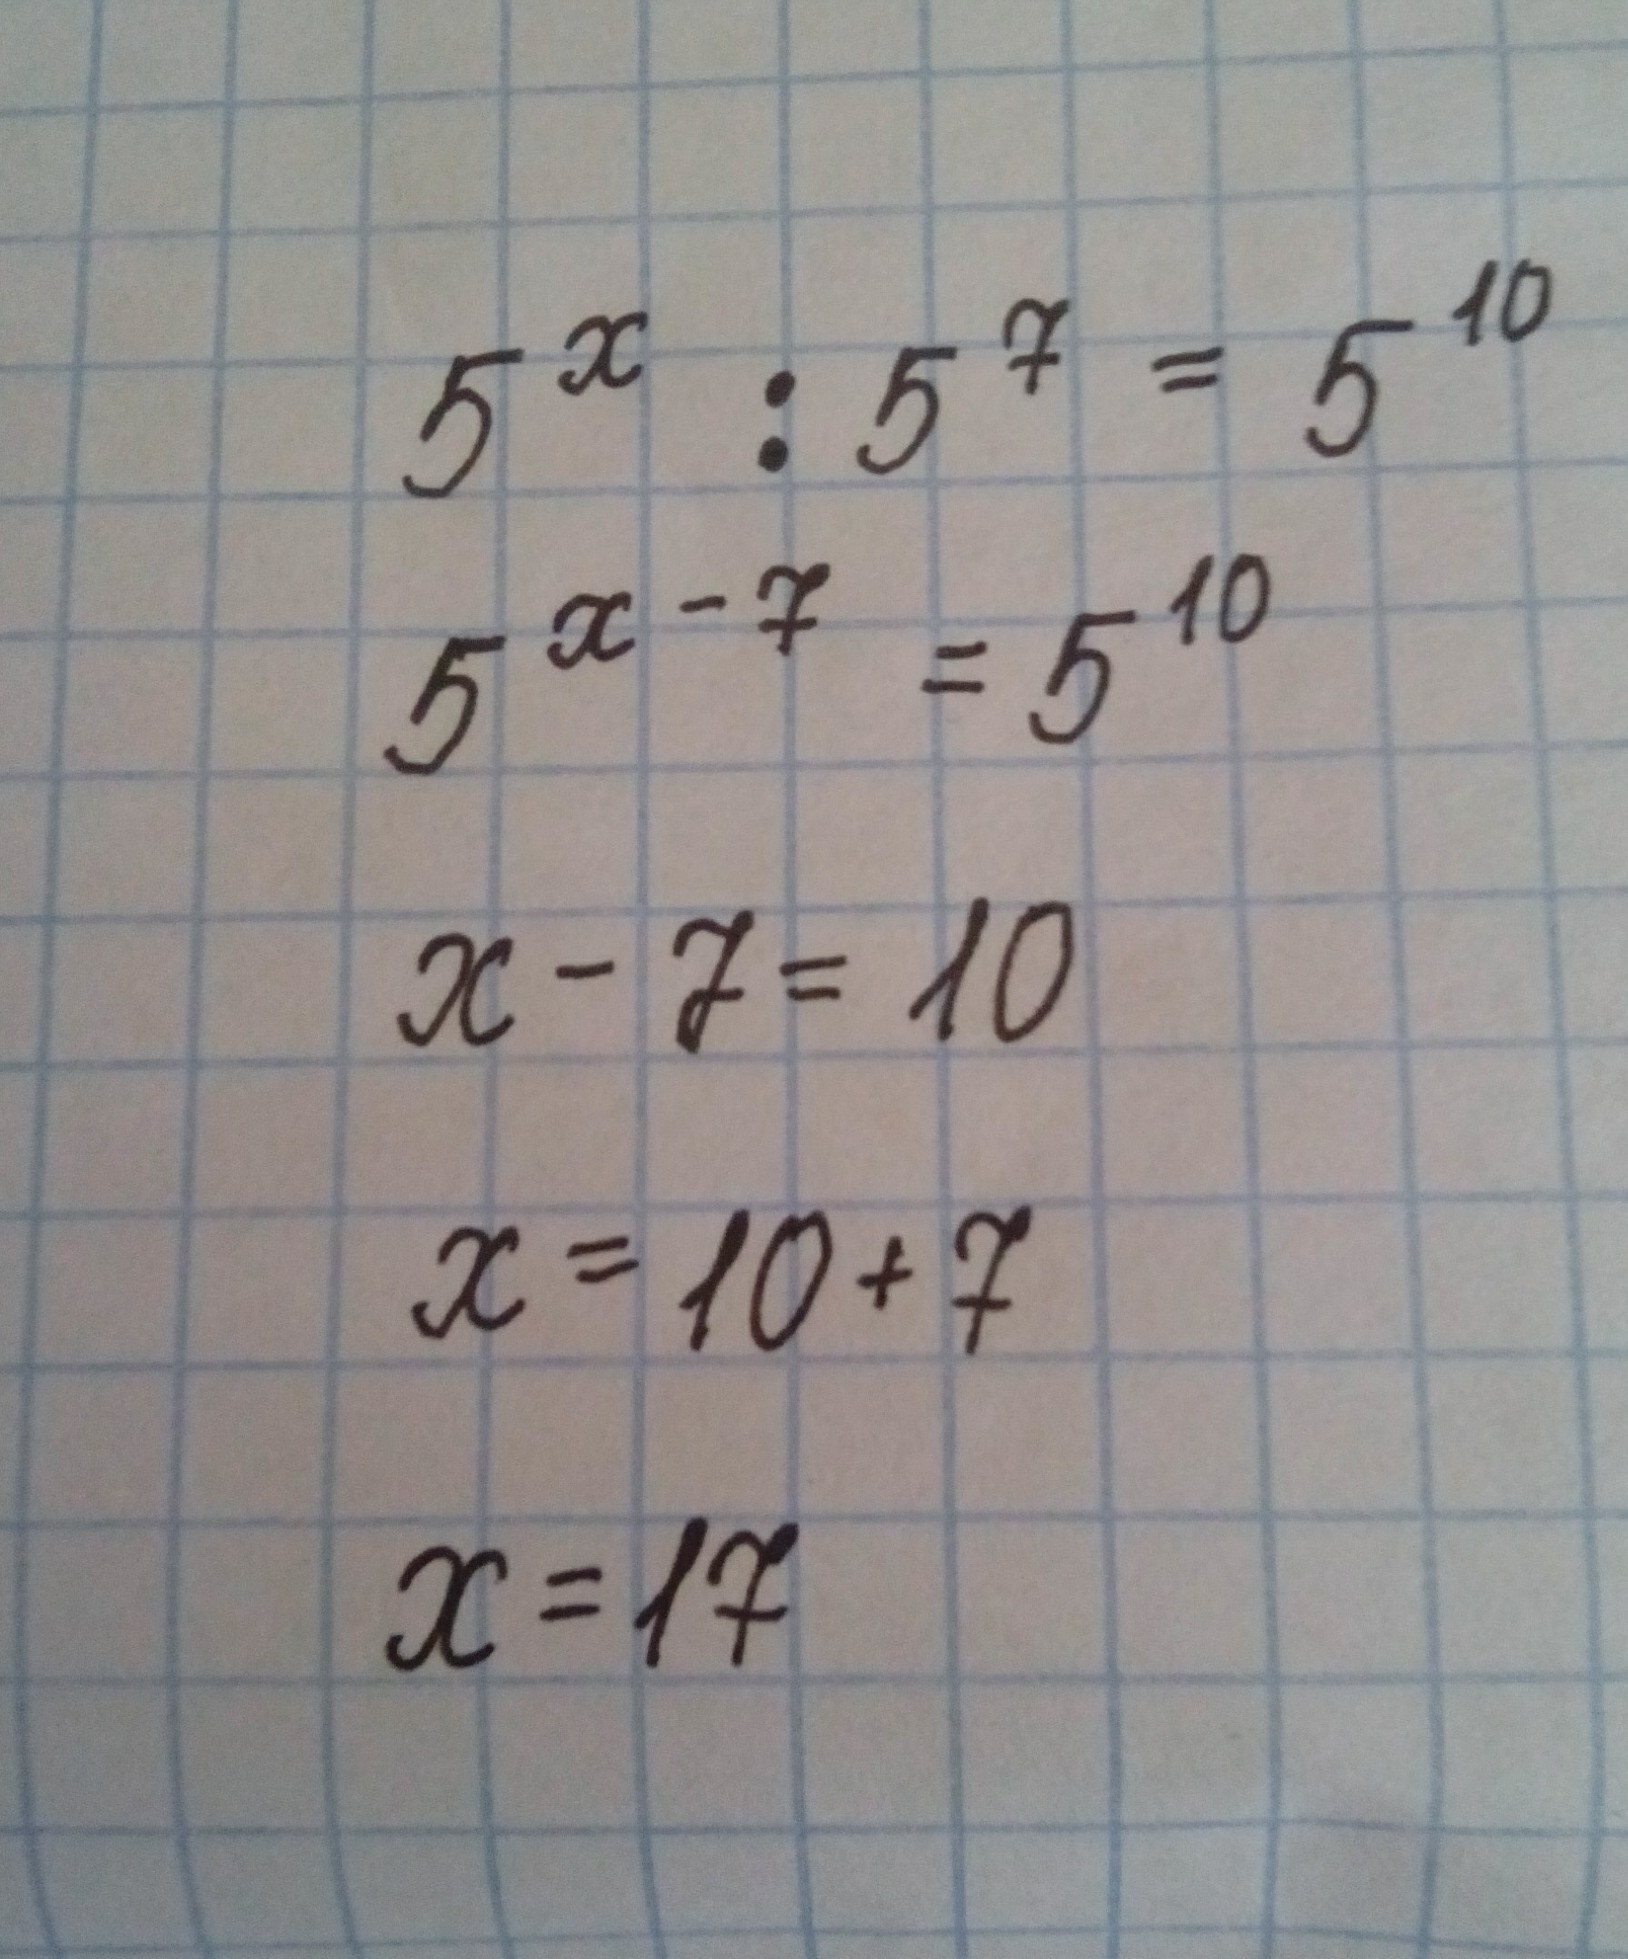 5^x : 5^7 = 5^10
5^x-7 = 5^10
x - 7 = 10
x = 10 + 7
x = 17